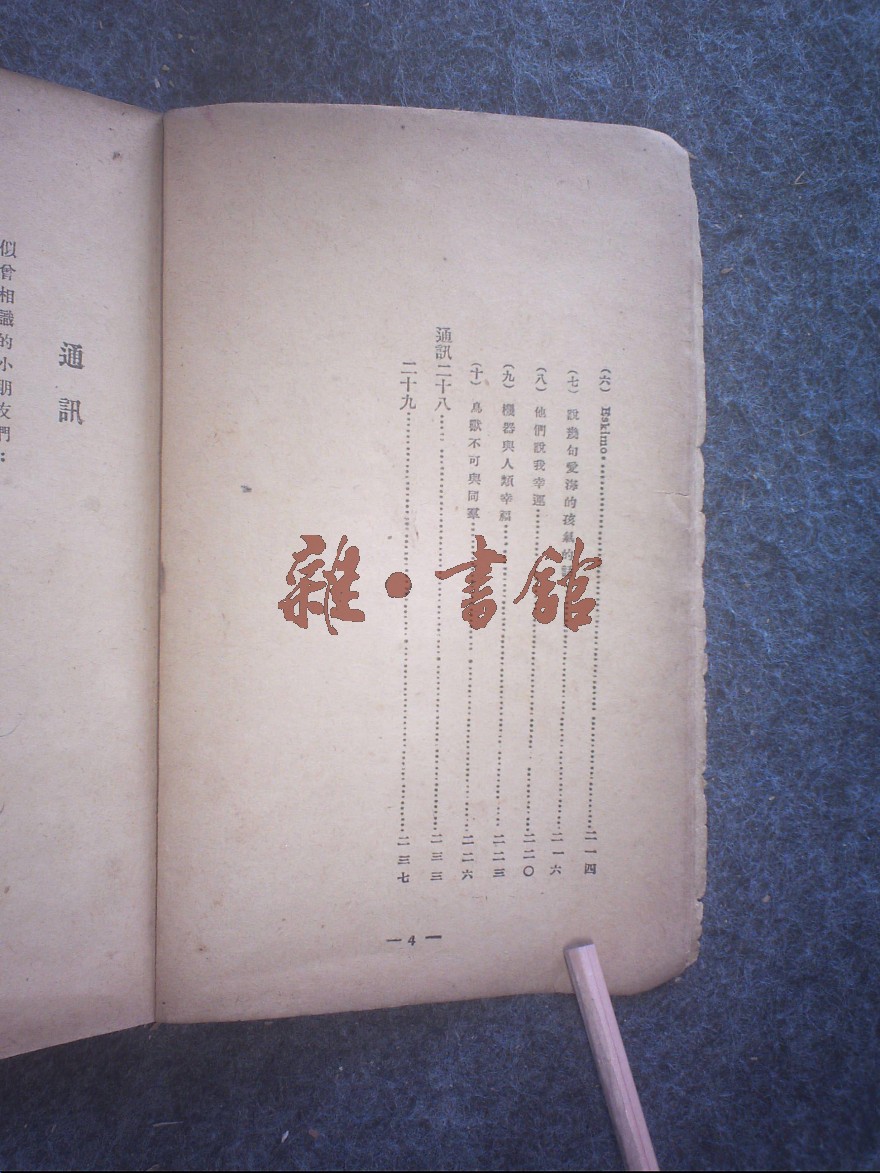 (六) Eskimo……二一四
(七) 說幾句愛海的孩氣的話……二一六
(八) 他們說我幸運……二二〇
(九) 機器與人類幸福……二二三
(十) 鳥獸不可與同羣……二二六
通訊二十八……二三三
二十九……二三七
— 4 —
通訊
似曾相識的小朋友們：
雜·書館